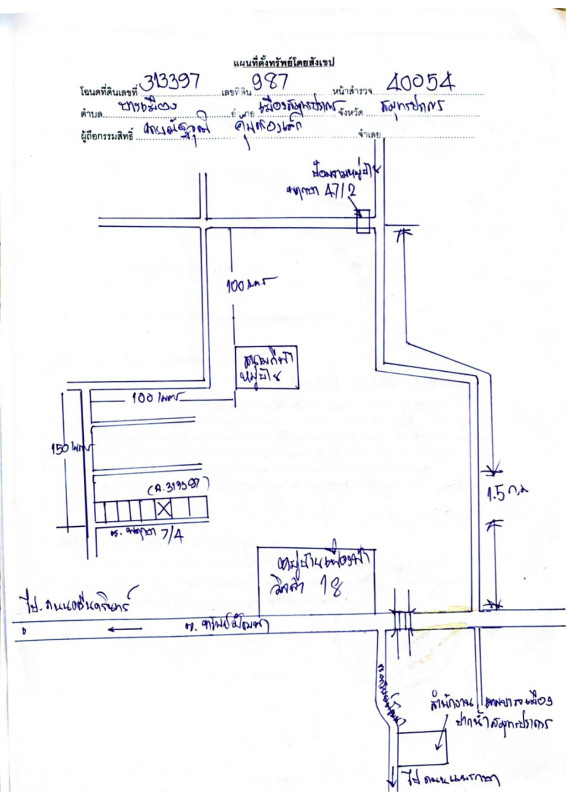 แผนที่ตั้งทรัพย์โดยสังเขป
โฉนดที่ดินเลขที่ 313397 เลขที่ดิน 987 หน้าสำรวจ 40054
ตำบล บางเมือง อำเภอ เมืองสมุทรปราการ จังหวัด สมุทรปราการ
ผู้ถือกรรมสิทธิ์ จำเลย
ป้อมยามหมู่บ้าน
พฤกษา 47/2
100 เมตร
สนามกีฬา
หมู่บ้าน
100 เมตร
150 เมตร
(ฉ.313397)
1.5 ก.ม
ซ. พฤกษา 7/4
หมู่บ้านเฟื่องฟ้า
วิลล่า 18
ไป ถนนศรีนครินทร์
สำนักงาน เทศบาลเมือง
ปากน้ำสมุทรปราการ
ไป ถนนแพรกษา